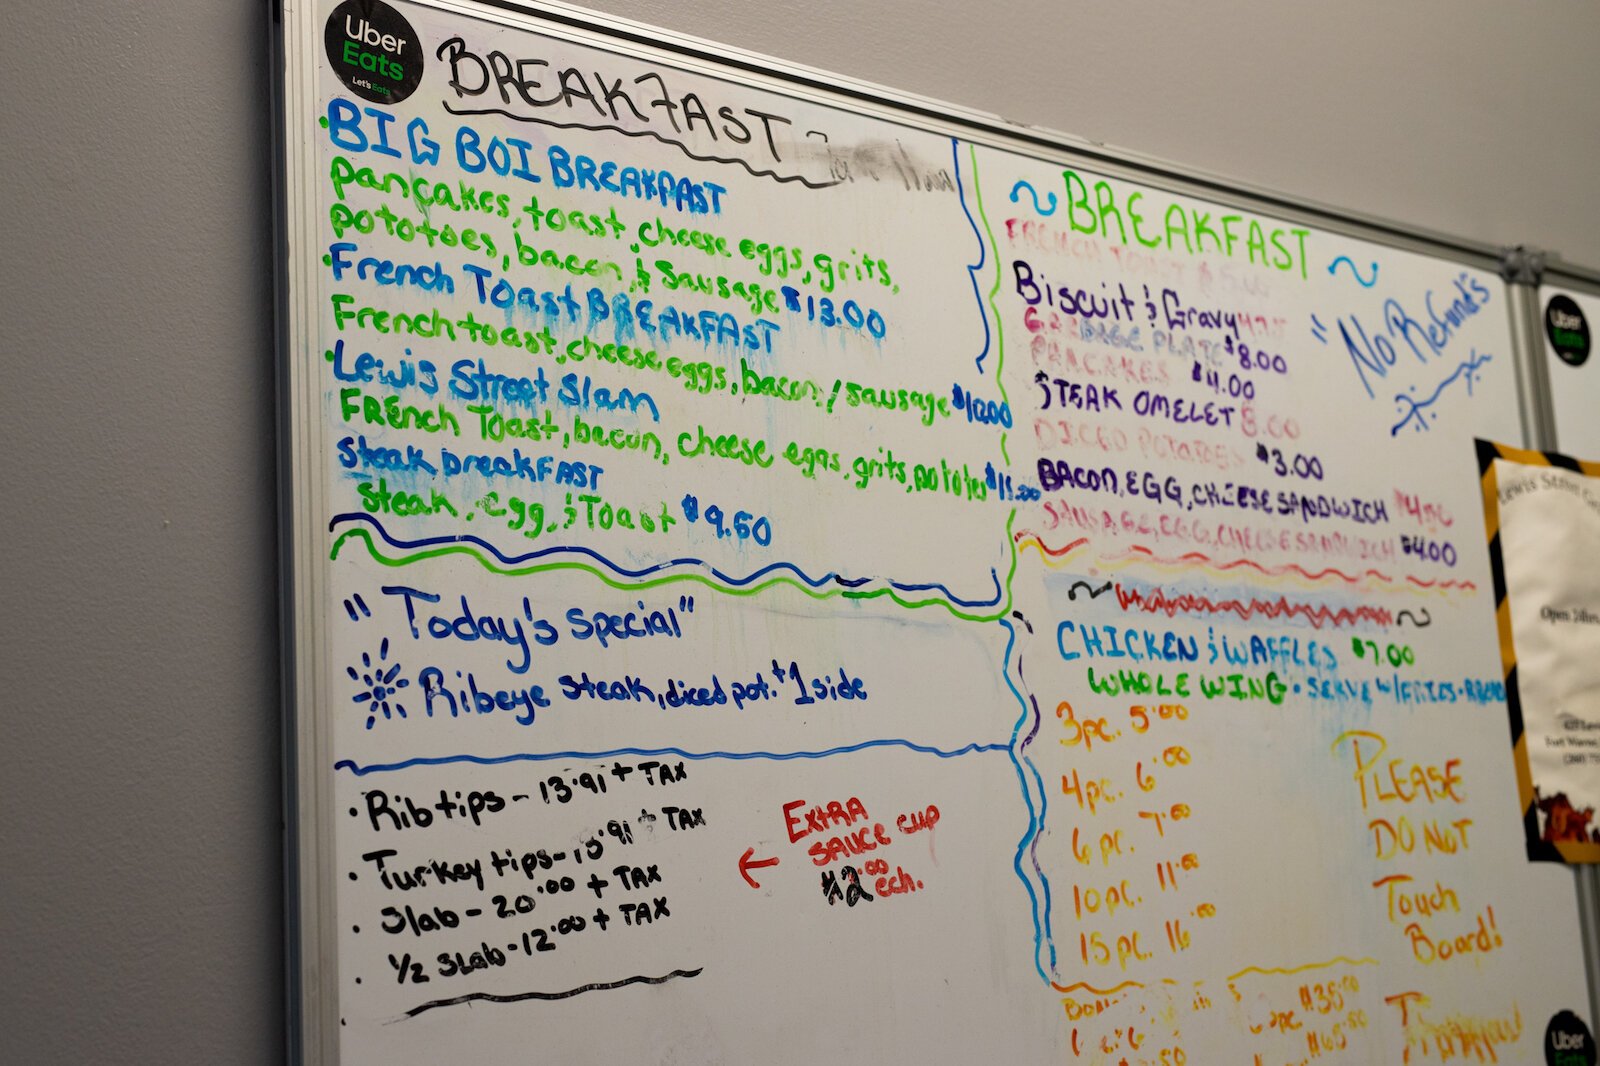 Uber
Eats
Let's Eats
BREAKFAST
BIG BOI BREAKFAST
pancakes, toast, cheese eggs, grits,
pototoes, bacon, & sausage $13.00
French Toast BREAKFAST
French toast, cheese eggs, bacon / sausage $10.00
Lewis Street Slam
FRENCH Toast, bacon, cheese eggs, grits, potatoes $15.00
Steak breakFAST
Steak, egg, & Toast $9.50
"Today's special"
Ribeye steak, diced pot. + 1 side
· Rib tips - 13.91 + TAX
· Turkey tips - 13.91 + TAX
· Slab - 20.00 + TAX
· 1/2 SLab - 12.00 + TAX
← ExtRA
SAUCE cup
$2.00 ech.
~ BREAKFAST ~
FRENCH TOAST
Biscuit & Gravy
GARBAGE PLATE $8.00
PANCAKES $4.00
STEAK OMELET 8.00
DICED POTATOES $3.00
BACON, EGG, CHEESE SANDWICH
SAUSAGE, EGG, CHEESE SANDWICH $4.00
"No Refund's
CHICKEN & WAFFLES $7.00
WHOLE WING · SERVE W/FRIES ·
3pc. 5.00
4pc. 6.00
6pc. 7.00
10pc. 11.00
15pc. 16.00
PLEASE
DO NOT
Touch
Board!
Uber
Eats
Open 24hrs
Uber
Eats